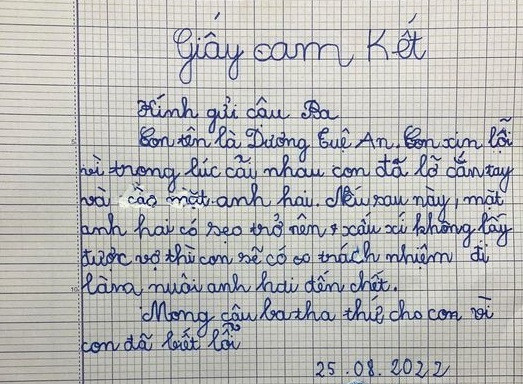 Giấy cam kết
Kính gửi câu Ba
Con tên là Dương Tuệ An. Con xin lỗi
vì trong lúc cãi nhau con đã lỡ cắn tay
và cào mặt anh hai. Nếu sau này, mặt
anh hai có sẹo trở nên xấu xí không lấy
được vợ thì con sẽ có trách nhiệm đi
làm nuôi anh hai đến chết.
Mong câu ba tha thứ cho con vì
con đã biết lỗi
25.08.2022